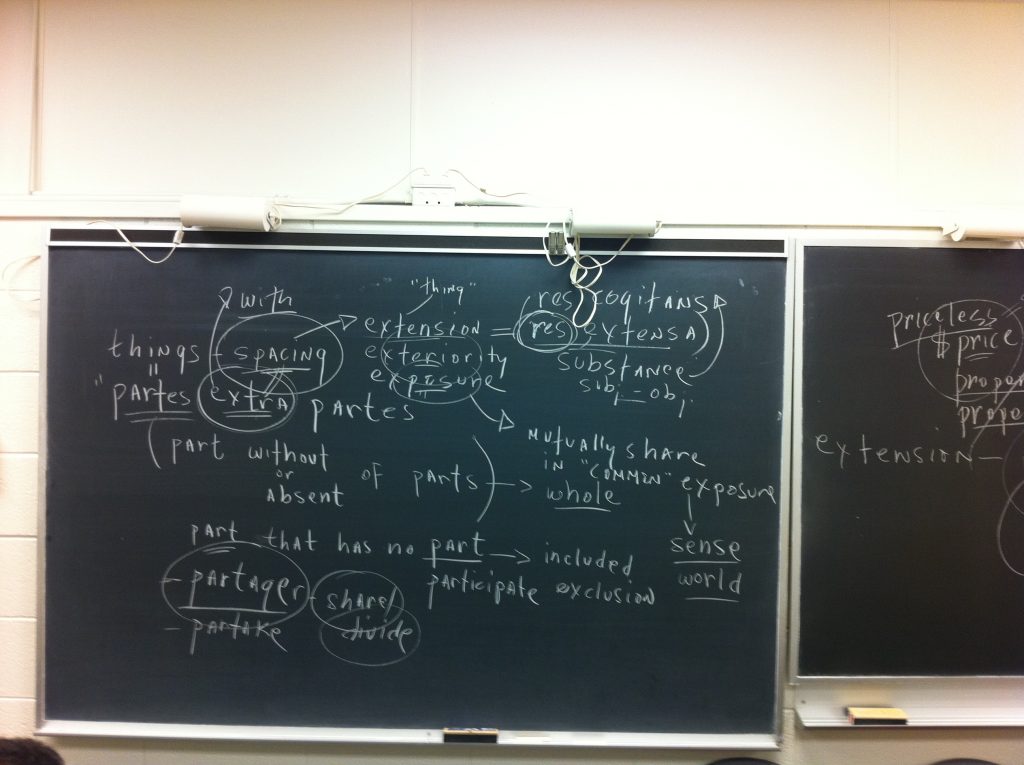 & with
"thing"
res cogitans
things - spacing
extension = res extensa
"partes extra partes
exteriority
exposure
substance
subj-obj
part without of parts
or
absent
mutually share
in "common" exposure
whole
sense
world
part that has no part → included
participate exclusion
- partager - share/
divide
- partake
priceless
$price
proper
prope
extension -